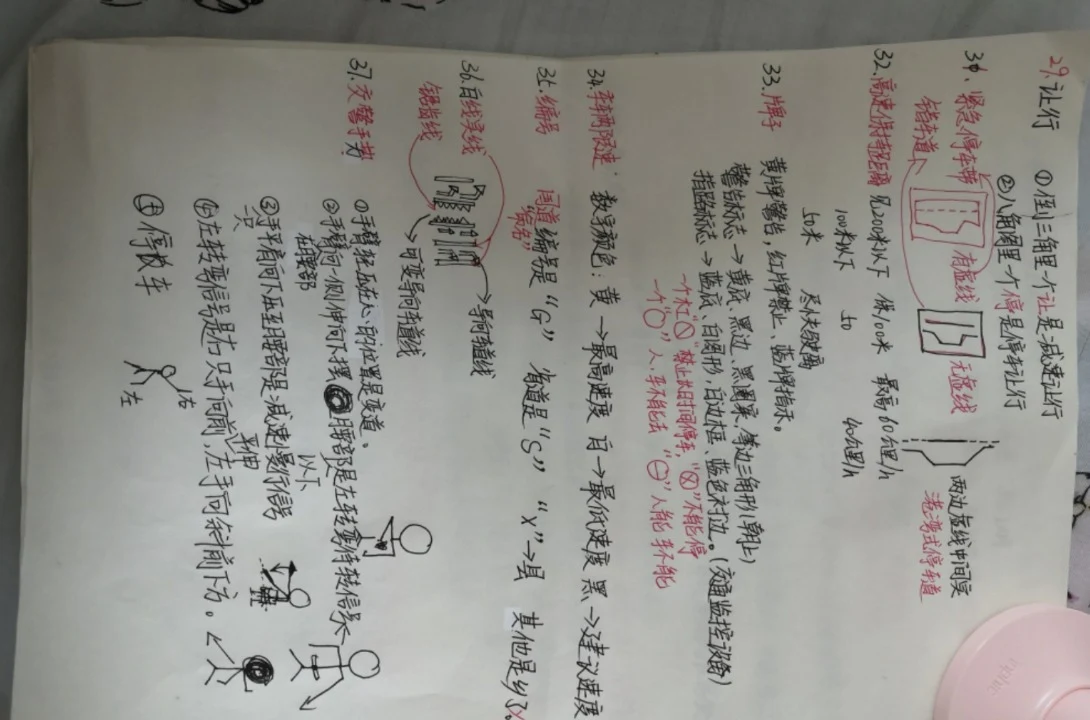 29. 让行 ①倒三角里一个让是减速让行
②八角图里一个停是停车让行
30. 紧急停车带 有虚线
错车道 无虚线
两边虚线中间实
港湾式停车道
32. 高速保持距离 见200米以下 保100米 最高60公里/h
100米以下 50 40公里/h
50米 尽快驶离
33. 牌子 黄牌警告,红牌禁止、蓝牌指示。
警告标志→黄底、黑边、黑图案、等边三角形(朝上)
指路标志→蓝底、白图形,白边框、蓝色衬边。(交通监控设备)
一个杠"⃠"禁止长时间停车,"⊗"不能停
一个"○"人、车不能去 "⊖"人能车不能
34. 车辆限速:数字颜色:黄→最高速度 白→最低速度 黑→建议速度
35. 编号 国道编号是"G" 省道是"S" "X"→县 其他是乡了。
"编号"
36. 白线实线 →导向车道线
锯齿线 →可变导向车道线
37. 交警手势 ①手臂轻压在人的位置是变道。
②手臂向一侧伸向下摆 腰部是左转弯待转信号
在腰部 以下
③手平肩向下压至腰部是减速慢行信号
一只
④左转弯信号是右只手向前,左手向斜前下方。
平伸
⑤停校车
右
左